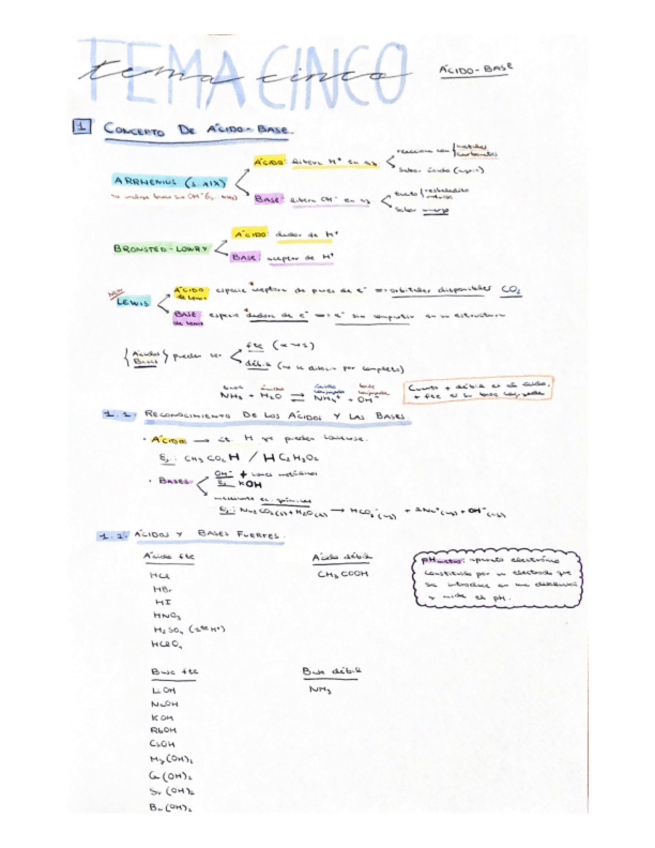 TEMA CINCO
tema cinco
ÁCIDO-BASE
1 CONCEPTO DE ÁCIDO-BASE.
ARRHENIUS (s. XIX)
ÁCIDO: libera H⁺ en
reacciona con
metales
carbonatos
Sabor ácido (agrio)
BASE: libera OH⁻ en
Sabor amargo
BRONSTED-LOWRY
ÁCIDO: dador de H⁺
BASE: aceptor de H⁺
LEWIS
ÁCIDO de Lewis especie aceptora de pares de e⁻ orbitales disponibles CO₂
BASE de Lewis especie dadora de e⁻ e⁻ sin compartir en su estructura
Ácidos
Bases
pueden ser
fte
débil (no se disocian por completo)
base ácido ácido conjugado base conjugada
NH₃ + H₂O ⇌ NH₄⁺ + OH⁻
Cuanto + débil es un ácido,
+ fte es su base conjugada
1.1. RECONOCIMIENTO DE LOS ÁCIDOS Y LAS BASES
· ÁCIDOS → H que pueden
Ej.: CH₃CO₂H / HC₂H₃O₂
· BASES:
OH⁻ + iones metálicos
Ej. KOH
mediante
Ej.: Na₂CO₃(s) + H₂O(l) → HCO₃⁻(aq) + 2Na⁺(aq) + OH⁻(aq)
1.2. ÁCIDOS Y BASES FUERTES.
Ácido fte
Ácido débil
HCl
CH₃COOH
HBr
HI
HNO₃
H₂SO₄ (1er H⁺)
HClO₄
pHmetro: aparato electrónico
constituido por un electrodo que
se introduce en una disolución
y mide el pH.
Base fte
Base débil
LiOH
NH₃
NaOH
KOH
RbOH
CsOH
Mg(OH)₂
Ca(OH)₂
Sr(OH)₂
Ba(OH)₂